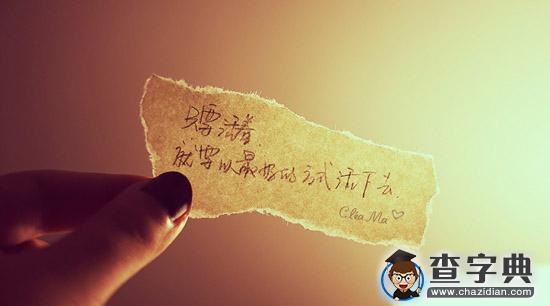 只要活着
就要以最好的方式活下去.
Clea Ma♡
查字典
www.chazidian.com